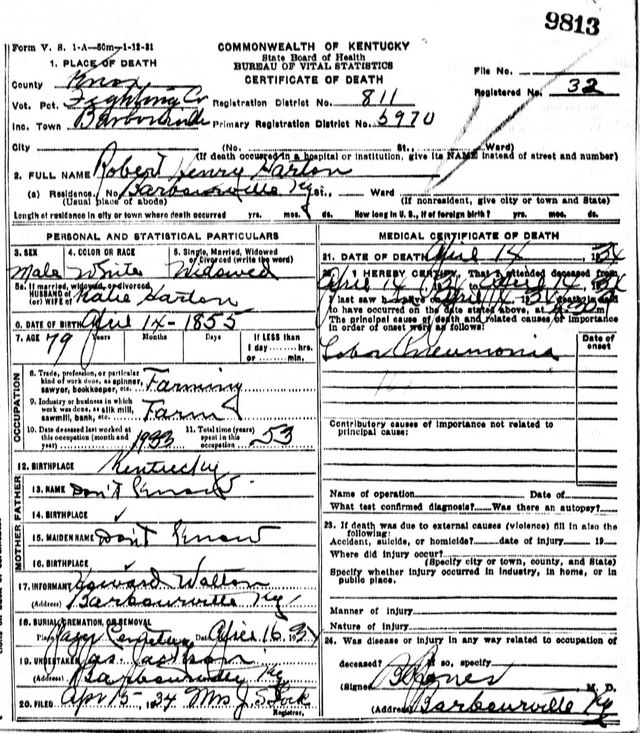 9813
Form V. S. 1-A—50m—1-12-31
COMMONWEALTH OF KENTUCKY
State Board of Health
BUREAU OF VITAL STATISTICS
CERTIFICATE OF DEATH
1. PLACE OF DEATH
County Knox
Vot. Pct. Fighting Cr
Inc. Town Barbourville
Registration District No. 811
Primary Registration District No. 5970
File No.
Registered No. 32
City (No. St., Ward)
(If death occurred in a hospital or institution, give its NAME instead of street and number)
2. FULL NAME Robert Henry
(a) Residence. No. Barbourville Ky St., Ward
(Usual place of abode) (If nonresident, give city or town and State)
Length of residence in city or town where death occurred yrs. mos. ds. How long in U. S., if of foreign birth? yrs. mos. ds.
PERSONAL AND STATISTICAL PARTICULARS
3. SEX 4. COLOR OR RACE 5. Single, Married, Widowed or Divorced (write the word)
Male White Widowed
5a. If married, widowed, or divorced
HUSBAND of
(or) WIFE of
6. DATE OF BIRTH April 14 - 1855
7. AGE 79 Years Months Days If LESS than
1 day......hrs.
or......min.
OCCUPATION
8. Trade, profession, or particular
kind of work done, as spinner,
sawyer, bookkeeper, etc. Farming
9. Industry or business in which
work was done, as silk mill,
sawmill, bank, etc. Farm
10. Date deceased last worked at
this occupation (month and
year) 1933
11. Total time (years)
spent in this
occupation 53
12. BIRTHPLACE Kentucky
FATHER
13. NAME Don't Know
14. BIRTHPLACE ✓
MOTHER
15. MAIDEN NAME Don't Know
16. BIRTHPLACE ✓
17. INFORMANT Howard Walton
(Address) Barbourville Ky
18. BURIAL, CREMATION, OR REMOVAL
Place Cemetery Date April 16 1934
19. UNDERTAKER Jas. Jackson
(Address) Barbourville Ky
20. FILED Apr 15 - 34 Mrs J. S.
Registrar.
MEDICAL CERTIFICATE OF DEATH
21. DATE OF DEATH April 14, 1934
22. I HEREBY CERTIFY, That I attended deceased from
April 14 1934 to April 14 1934
I last saw h alive on April 14 1934 death is said
to have occurred on the date stated above, at
The principal cause of death and related causes of importance
in order of onset were as follows:
Date of onset
Lobar Pneumonia
Contributory causes of importance not related to
principal cause:
Name of operation Date of
What test confirmed diagnosis? Was there an autopsy?
23. If death was due to external causes (violence) fill in also the
following:
Accident, suicide, or homicide? date of injury 19
Where did injury occur?
(Specify city or town, county, and State)
Specify whether injury occurred in industry, in home, or in
public place.
Manner of injury
Nature of injury
24. Was disease or injury in any way related to occupation of
deceased? If so, specify
(Signed) Jones M. D.
(Address) Barbourville Ky